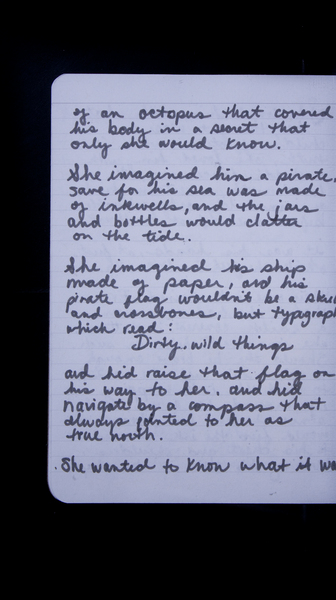 of an octopus that covered
his body in a secret that
only she would know.
She imagined him a pirate,
save for his sea was made
of inkwells, and the jars
and bottles would clatter
on the tide.
She imagined his ship
made of paper, and his
pirate flag wouldn't be a
and crossbones, but
which read:
Dirty, wild things
and he'd raise that flag on
his way to her, and he'd
navigate by a compass that
always pointed to her as
true north.
She wanted to know what it